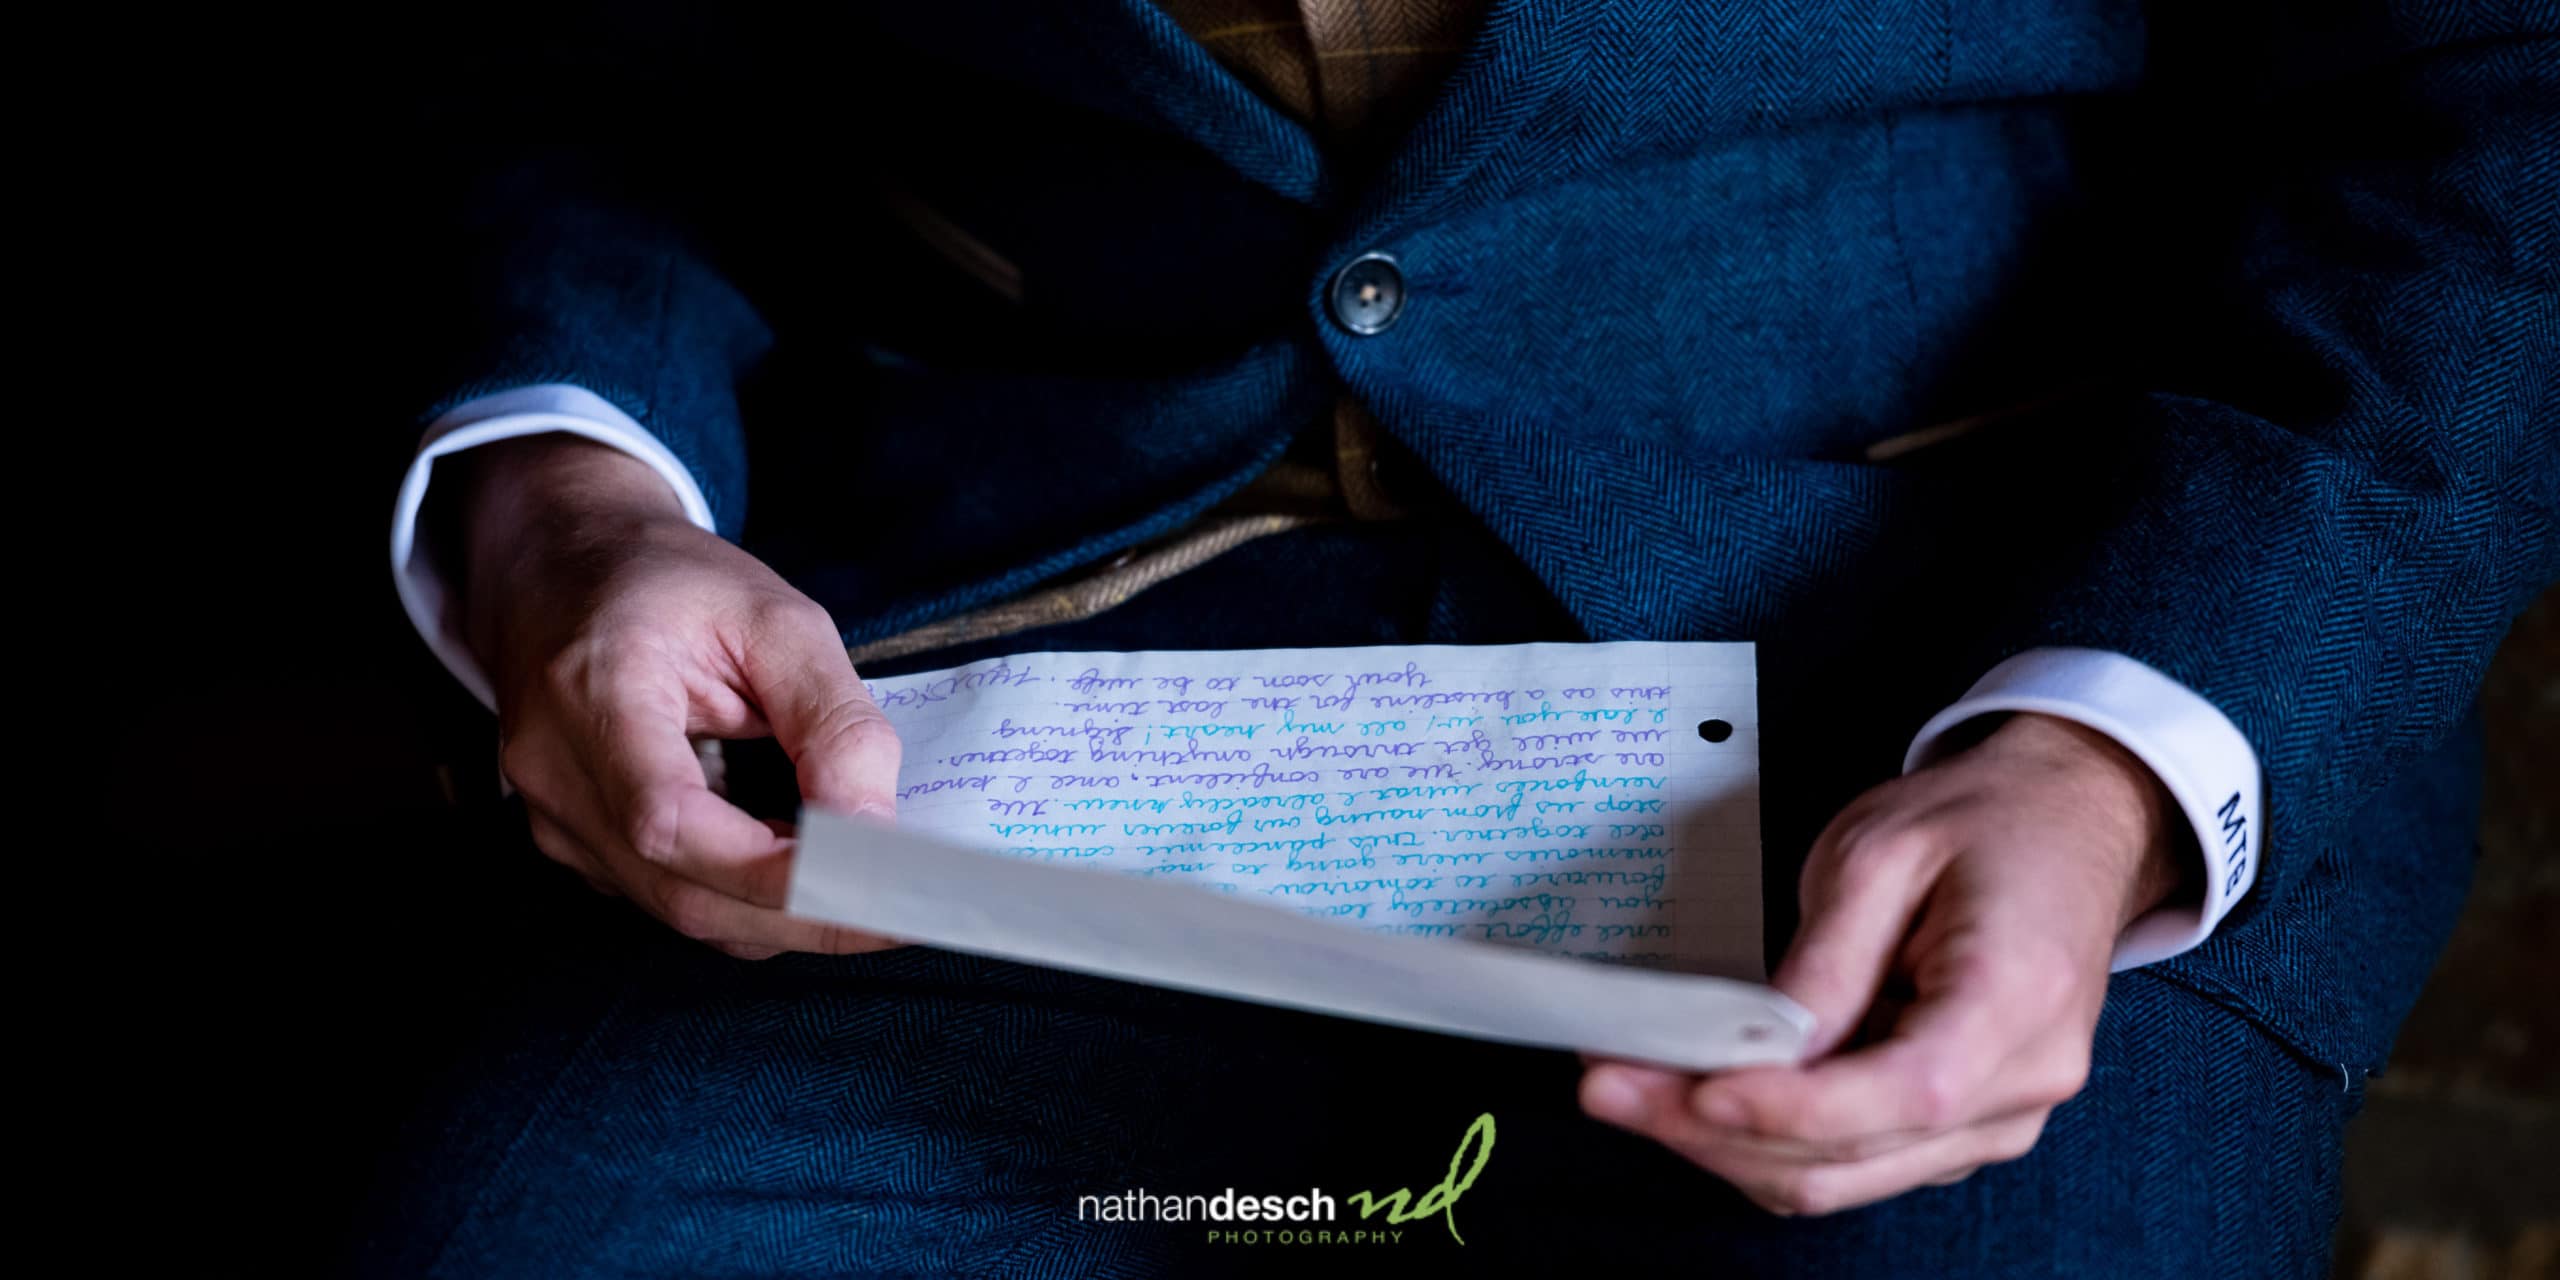 and effort
you absolutely
forward to tomorrow
memories were going to
all together. This pandemic
stop us from having our forever which
reinforces what I already knew. We
are strong. We are confident, and I know
we will get through anything together.
I love you w/ all my heart! Signing
this as a for the last time.
your soon to be wife.
MTB
nathandesch nd
PHOTOGRAPHY